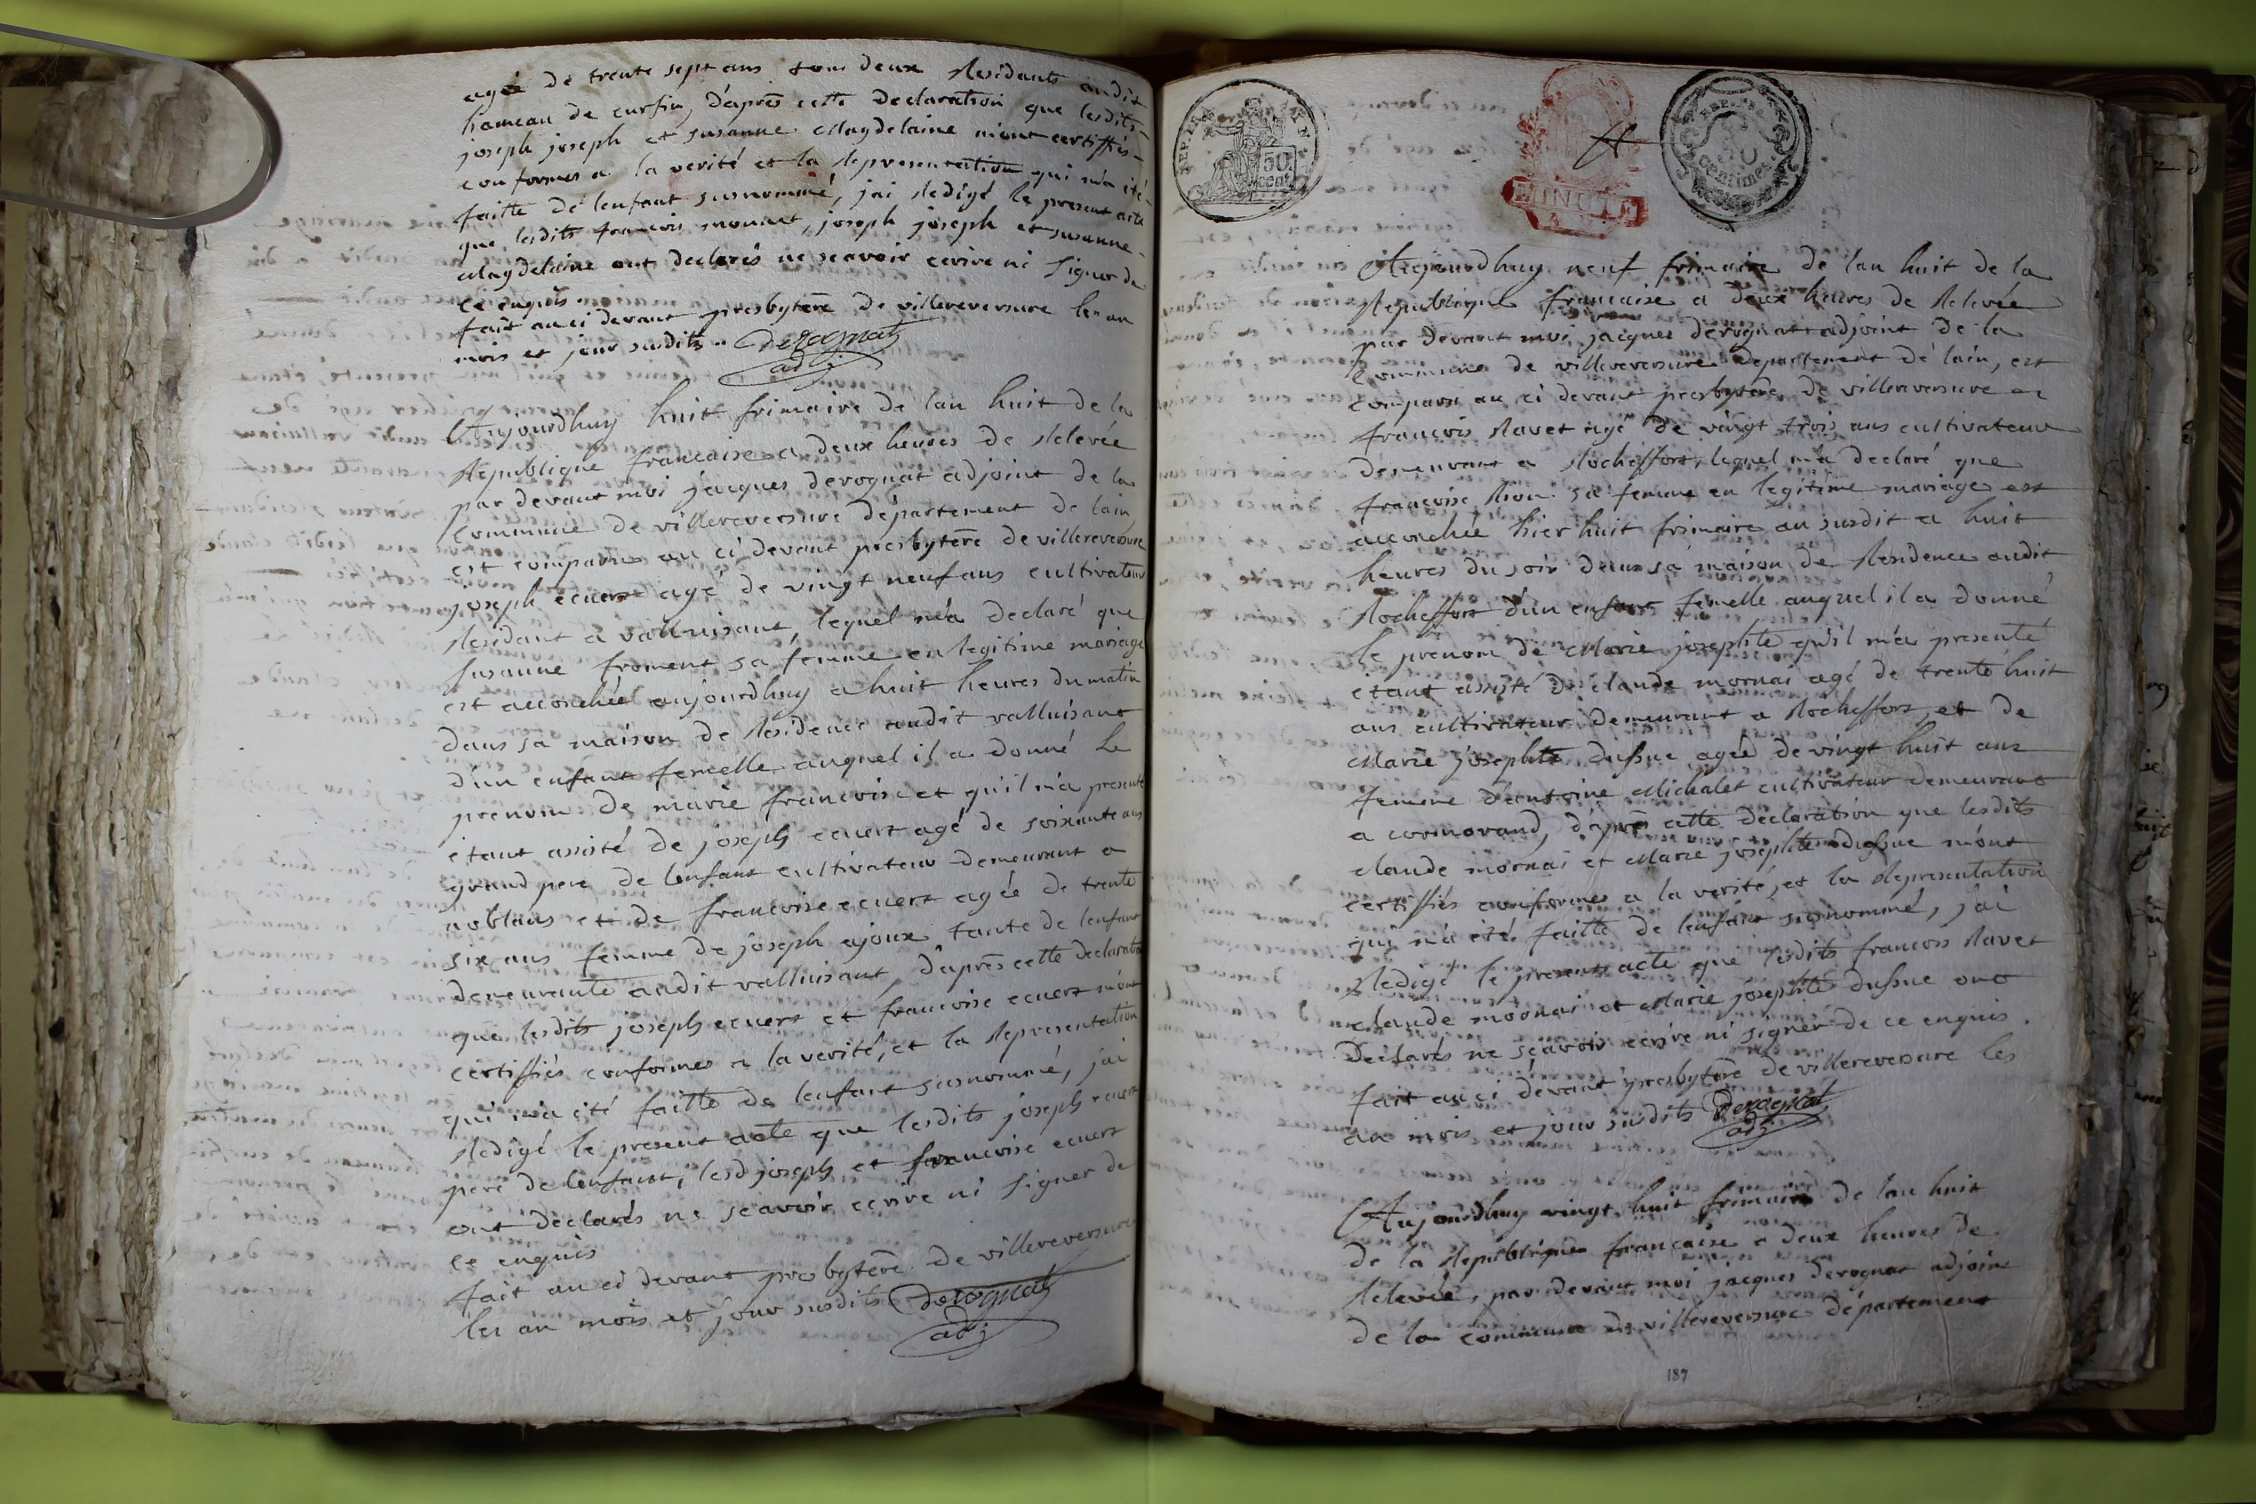 agé de trente sept ans tous deux residants audit
hameau de cursin, d'après cette declaration que lesdits
joseph joseph et susanne Magdelaine m'ont certiffiés
conformes a la verité et la representation qui m'a été
faitte de lenfant susnommé, j'ai redigé le present acte
que lesdits francois monnet, joseph joseph et susanne
Magdelaine ont declarés ne scavoir ecrire ni signer de
ce enquis.
fait au ci devant presbytere de villereversure les an
mois et jour susdits. Derognat
adj
Aujourdhuy huit frimaire de lan huit de la
Republique francaise a deux heures de relevée
par devant moi jacques derognat adjoint de la
commune de villereversure département de lain
est comparu au ci devant presbytere de villereversure
joseph ecuert agé de vingt neuf ans cultivateur
residant a valluisant, lequel m'a declaré que
susanne froment sa femme en legitime mariage
est accouchée aujourdhuy a huit heures du matin
dans sa maison de residence audit valluisant
d'un enfant femelle auquel il a donné le
prenom de marie francoise et qu'il m'a presenté
étant assisté de joseph ecuert agé de soixante ans
grand pere de lenfant cultivateur demeurant a
noblans et de francoise ecuert agée de trente
six ans femme de joseph ajoux tante de lenfant
demeurante audit valluisant, d'après cette declaration
que lesdits joseph ecuert et francoise ecuert m'ont
certiffiés conformes a la verité, et la representation
qui m'a été faitte de lenfant susnommé, j'ai
redigé le present acte que lesdits joseph ecuert
pere de lenfant, lesd joseph et francoise ecuert
ont declarés ne scavoir ecrire ni signer de
ce enquis
fait au ci devant presbytere de villereversure
les an mois et jour susdits Derognat
adj
REP. FRA
50 cent
REP. FRA.
50 Centimes
Aujourdhuy neuf frimaire de lan huit de la
Republique francaise a deux heures de relevée
par devant moi jacques derognat adjoint de la
commune de villereversure departement de lain, est
comparu au ci devant presbytere de villereversure
francois Ravet agé de vingt trois ans cultivateur
demeurant a Rocheffort, lequel m'a declaré que
francoise sa femme en legitime mariage est
accouchée hier huit frimaire an susdit a huit
heures du soir dans sa maison de residence audit
Rocheffort d'un enfant femelle auquel il a donné
le prenom de Marie josephte qu'il m'a presenté
étant assisté de claude mornai agé de trente huit
ans cultivateur demeurant a Rocheffort, et de
Marie josephte agée de vingt huit ans
femme d'antoine Michalet cultivateur demeurant
a cormorand, d'après cette declaration que lesdits
claude mornai et Marie josephte m'ont
certiffiés conformes a la verité, et la representation
qui m'a été faitte de lenfant susnommé, j'ai
redigé le present acte que lesdits francois Ravet
claude mornai et Marie josephte ont
declarés ne scavoir ecrire ni signer de ce enquis.
fait au ci devant presbytere de villereversure les
an mois et jour susdits Derognat
adj
Aujourdhuy vingt huit frimaire de lan huit
de la Republique francaise a deux heures de
relevée, par devant moi jacques derognat adjoint
de la commune de villereversure département
187